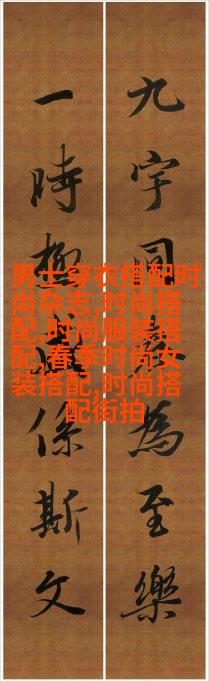 九宇同為至樂
一時極係斯文
男士穿衣搭配时
尚杂志,时尚搭
配,时尚服装搭
配,春季时尚女
装搭配,时尚搭
配街拍